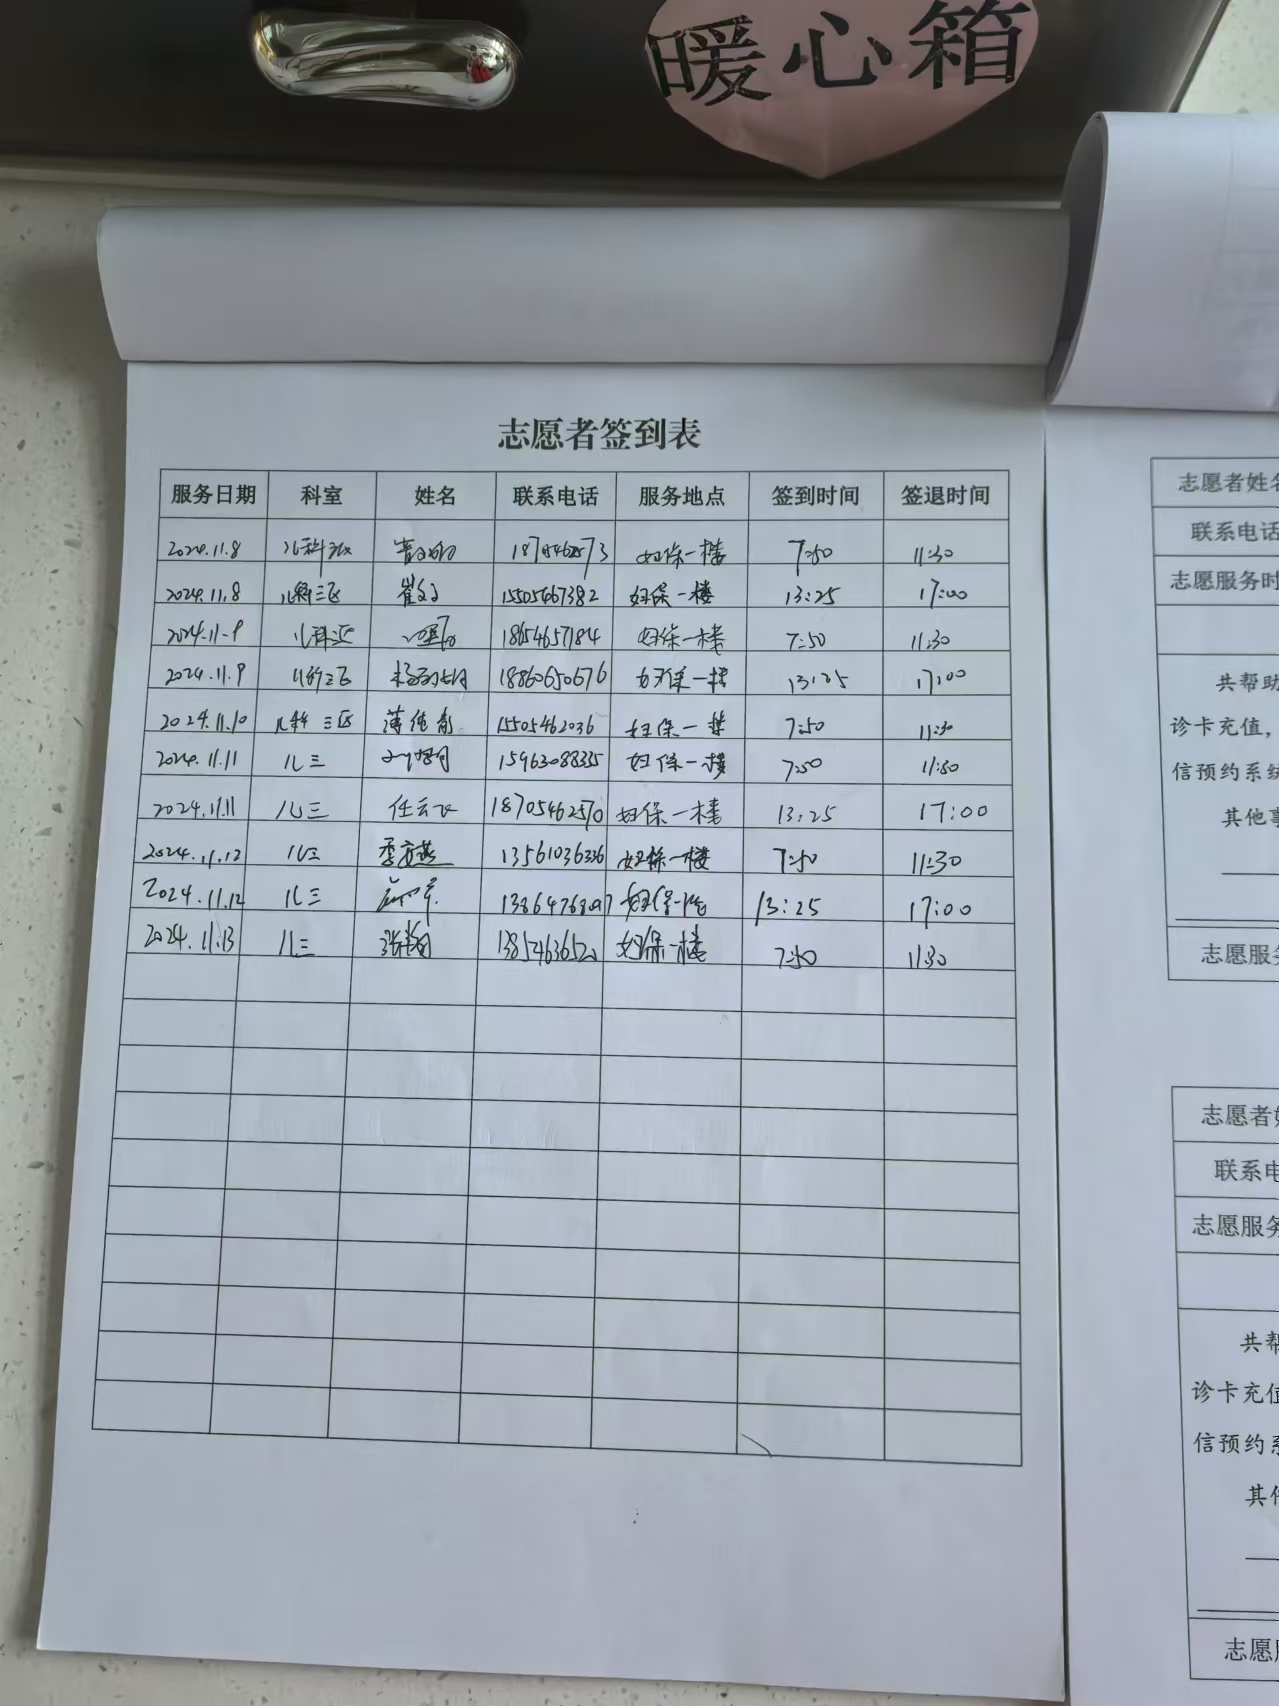 暖心箱
志愿者签到表
服务日期 科室 姓名 联系电话 服务地点 签到时间 签退时间
2024.11.8 妇保一楼 7:50 11:30
2024.11.8 儿科三区 崔 15505467382 妇保一楼 13:25 17:00
2024.11.9 18654657184 妇保一楼 7:50 11:30
2024.11.9 儿科三区 18860650676 妇保一楼 13:25 17:00
2024.11.10 儿科三区 薄 15505462036 妇保一楼 7:50 11:30
2024.11.11 儿三 15963088335 妇保一楼 7:50 11:30
2024.11.11 儿三 任云飞 18705462570 妇保一楼 13:25 17:00
2024.11.12 儿三 13561036336 妇保一楼 7:50 11:30
2024.11.12 儿三 妇保一楼 13:25 17:00
2024.11.13 儿三 妇保一楼 7:50 11:30
志愿者姓名
联系电话
志愿服务时
共帮助
诊卡充值，
信预约系统
其他事
志愿服务
志愿者姓
联系电
志愿服务
共帮
诊卡充值
信预约系
其他
志愿服